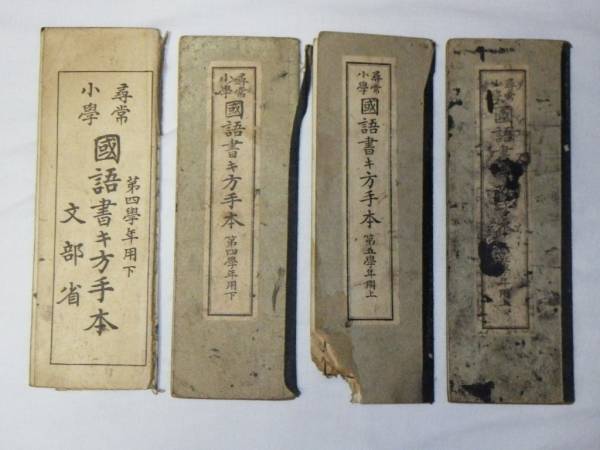 尋常小學
國語書キ方手本
第四學年用下
文部省
尋常小學
國語書キ方手本
第四學年用下
尋常小學
國語書キ方手本
第五學年用上
尋常
國語書
學年用